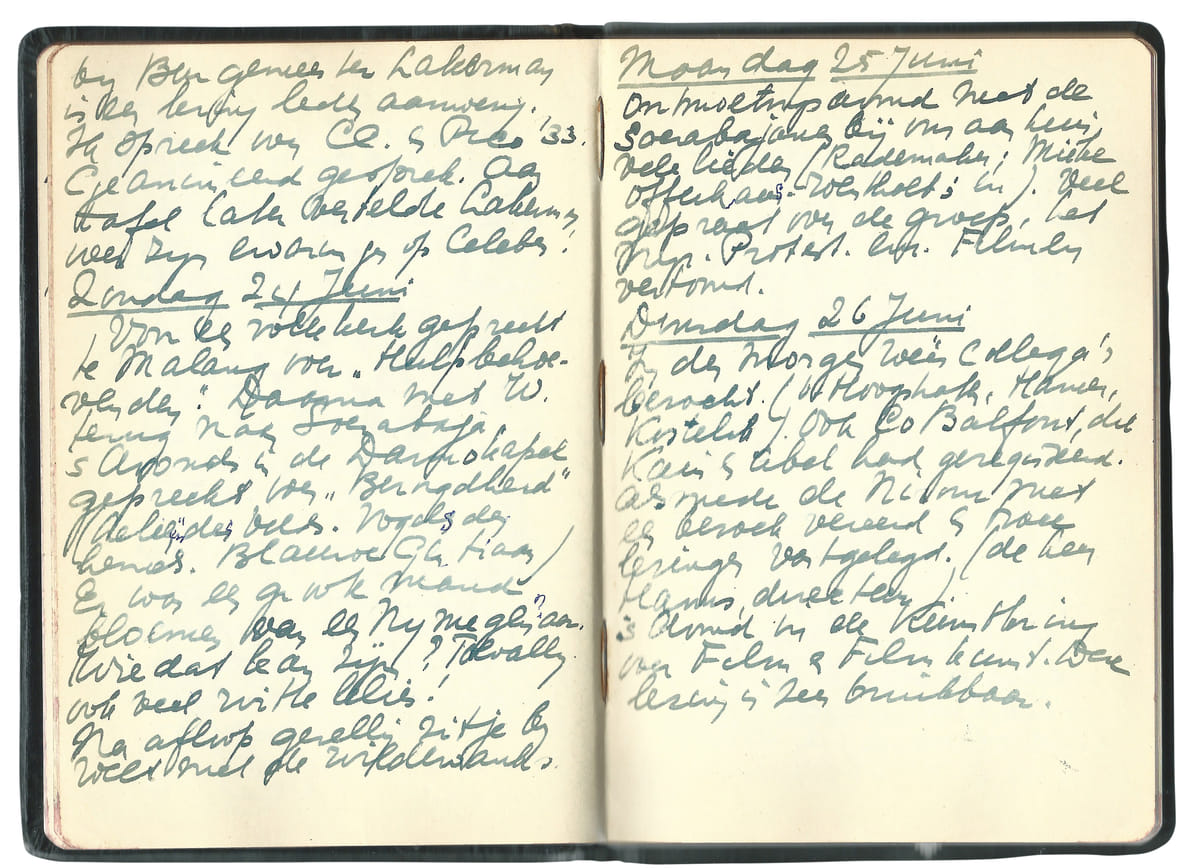 by Burgemeester Lakerman
is een kring leden aanwezig.
Ik spreek over Cl. &
Geanimeerd gesprek. Aan
tafel later vertelde Lakerman
weer zijn ervaringen op Celebes!
Zondag 24 Juni
Voor een volle kerk gepreekt
te Malang over „Hulpbehoe-
venden". Daarna met W.
terug naar Soerabaja.
s Avonds in de Darmokapel
gepreekt over „Bezorgdheid"
(Leliën des velds. Vogels des
hemels.
Er was een groote mand
bloemen van een Nymegenaar.
Wie dat kan zijn? Toevallig
ook veel witte lelies!
Na afloop gezellig zitje by
met de Wildervanks.
Maandag 25 Juni
Ontmoetingsavond met de
Soerabajanen bij ons aan huis,
vele lieden (Rademaker; Mieke
Offerhaus - in). Veel
gepraat over de groep, het
Prot. Films
vertoond.
Dinsdag 26 Juni
In den Morgen weer Collega's
bezocht. ('t Hooghak, Hamer,
). Ook Co Balfoort, die
Kain & Abel had geregisseerd.
Alsmede de Nirom met
een bezoek vereerd & twee
lezingen vastgelegd. (de heer
Harms, directeur)
s Avond in de Kunstkring
over Film & Filmkunst. Deze
lezing is zeer bruikbaar.